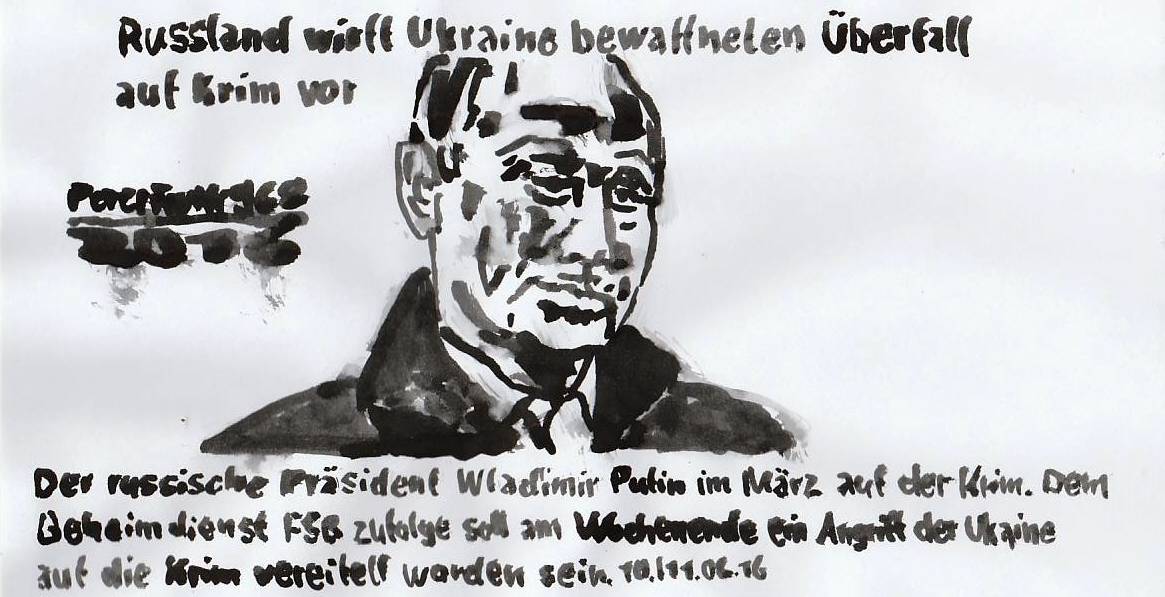 Russland wirft Ukraine bewaffneten Überfall
auf Krim vor
Der russische Präsident Wladimir Putin im März auf der Krim. Dem
Geheimdienst FSB zufolge soll am Wochenende ein Angriff der Ukaine
auf die Krim vereitelt worden sein.